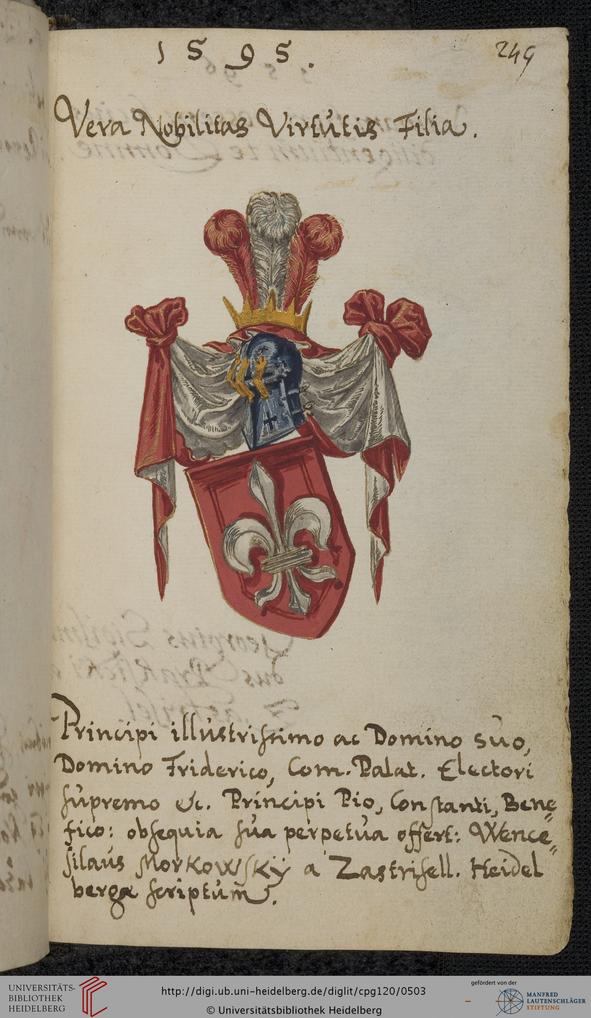 1595.
249
Vera Nobilitas Virtutis Filia.
Principi illustrissimo ac Domino suo,
Domino Friderico, Com. Palat. Electori
supremo &c. Principi Pio, Constanti, Bene„
fico: obsequia sua perpetua offert: Wence„
silaus Morkowskÿ a Zastrisell. Heidel
berga scriptum.
UNIVERSITÄTS-
BIBLIOTHEK
HEIDELBERG
http://digi.ub.uni-heidelberg.de/diglit/cpg120/0503
© Universitätsbibliothek Heidelberg
gefördert von der
MANFRED
LAUTENSCHLÄGER
STIFTUNG